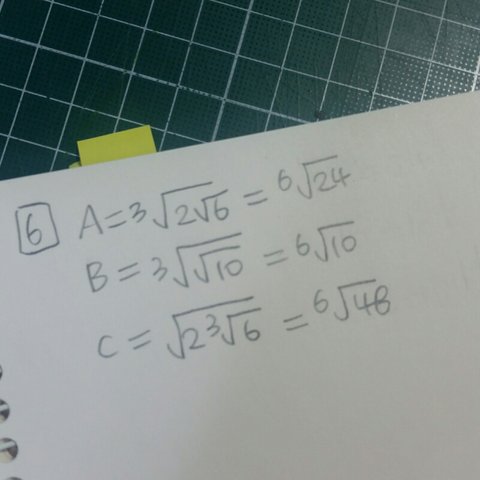 6 A=³√2√6 = ⁶√24
B = ³√√10 = ⁶√10
C = √2³√6 = ⁶√48